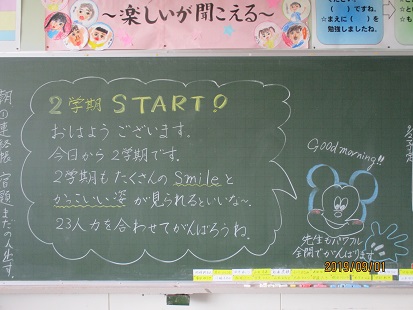 ～楽しいが聞こえる～
( )ですね。
☆まえに( )を
勉強しましたね。
2学期 START!
おはようございます。
今日から2学期です。
2学期もたくさんのSmileと
かっこいい姿が見られるといいな〜。
23人力を合わせてがんばろうね。
Good morning!!
先生もパワフル
全開でがんばります
朝の連絡帳 宿題
まだの人出す。
2019/09/01